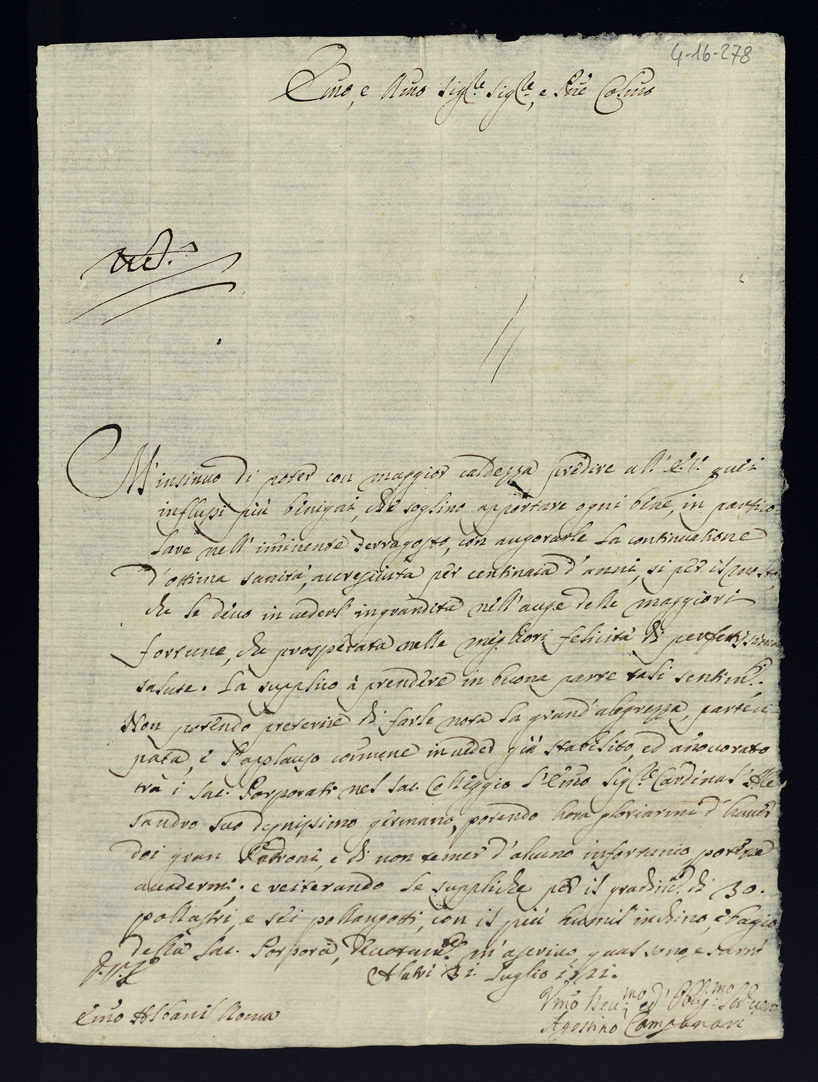 4-16-278
Emo, e Rmo Sig.re Sig.re, e Pñe Colmo
M'insinuo di poter con maggior caldezza predire all' E.V. quei
influssi più benigni, che soglino apportare ogni bene, in partico-
lare nell' iminente Ferragosto, con augurarle la continuatione
d'ottima sanità, accresciuta per centinaia d'anni, si per il
che le devo in vederl' ingrandita nell' auge delle maggiori
fortune, che prosperata nelle migliori felicità di perfettissima
salute. La supplico à prendere in buona parte tali sentim.ti.
Non potendo preterire di farle nota la grand' alegrezza, parteci-
pata, e l'applauso comune in veder già stabilito, ed añoverato
trà i Sac. Porporati nel Sac. Colleggio l'Emo Sig.re Cardinal Ale
sandro suo degnissimo germano, potendo hora gloriarmi d'haver
doi gran Padroni, e di non temer d'alcuno infortunio potesse
accadermi. e reiterando le suppliche per il gradim.to di 30.
pollastri, e sei pollangotti, con il più humil' inchino, e bagio
della Sac. Porpora, m'ascrivo, qual sono, e sarò
D.V.E.
Alatri 31 Luglio 1721.
Emo Albani Roma
Vmo Dev.mo ed Obbl.mo Ser.re
Agostino Campanari